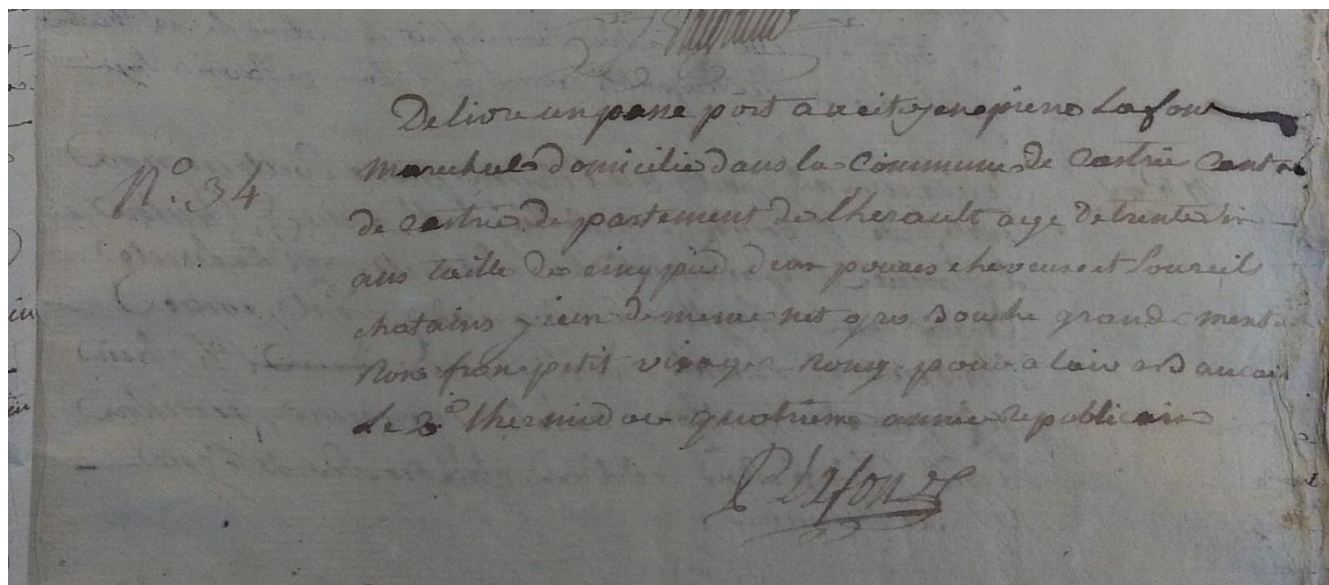 Delivre un passe port au citoyen pierre Lafon
N.º 34
marechal domicilie dans la Commune de Castrie Cant
de Castrie departement de lherault age de trente
ans taille de cinq pied deux pouces cheveux et Sourcils
chatains yieux de meme net gros Bouche grande ment
Ron fron petit visage Rong pour alair a Baucai
Le thermidor quatrieme année republicaine
P Lafon